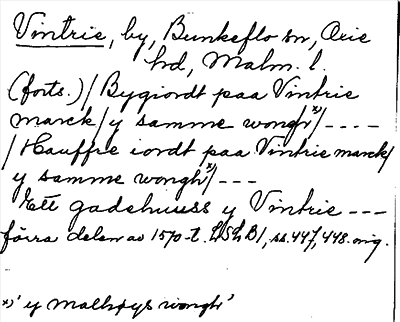 Vintrie, by, Bunkeflo sn, Oxie
hd, Malm. l.
(forts.)/ Bygiordt paa Vintrie
marck/ y samme wongh x)/ ----
/ Hauffre iordt paa Vintrie marck/
y samme wongh x)/ ---
Ett gadehuuss y Vintrie ---
förra delen av 1570-t. LSkB1, ss. 447, 448. orig.
x) 'y Malhøys wongh'